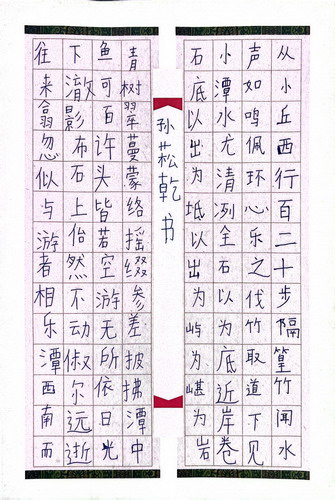 从小丘西行百二十步隔篁竹闻水
声如鸣佩环心乐之伐竹取道下见
小潭水尤清冽全石以为底近岸卷
石底以出为坻以出为屿为嵁为岩
青树翠蔓蒙络摇缀参差披拂潭中
鱼可百许头皆若空游无所依日光
下澈影布石上佁然不动俶尔远逝
往来翕忽似与游者相乐潭西南而
孙菘乾书